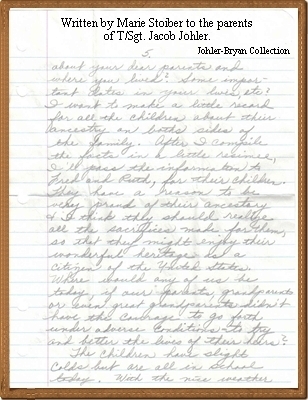 Written by Marie Stoiber to the parents
of T/Sgt. Jacob Johler.
Johler-Bryan Collection
5.
about your dear parents and
where you lived? Some impor-
tant dates in your lives, etc?
I want to make a little record
for all the children about their
ancestry on both sides of
the family. After I compile
the facts in a little resume,
I'll pass the information to
Fred and Ruth, for their children.
They have a reason to be
very proud of their ancestory
& I think they should realize
all the sacrifices made for them,
so that they might enjoy their
wonderful heritage as a
citizen of the United States.
Where would any of us be
today, if our parents, grandparents
or even great grandparents didn't
have the courage to go forth
under adverse conditions to try
and better the lives of their heirs?
The children have slight
colds but are all in school
today. With the nice weather